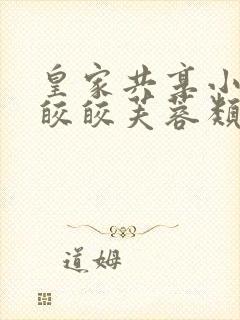 皇家共享小
皎皎芙蓉颜
道姆